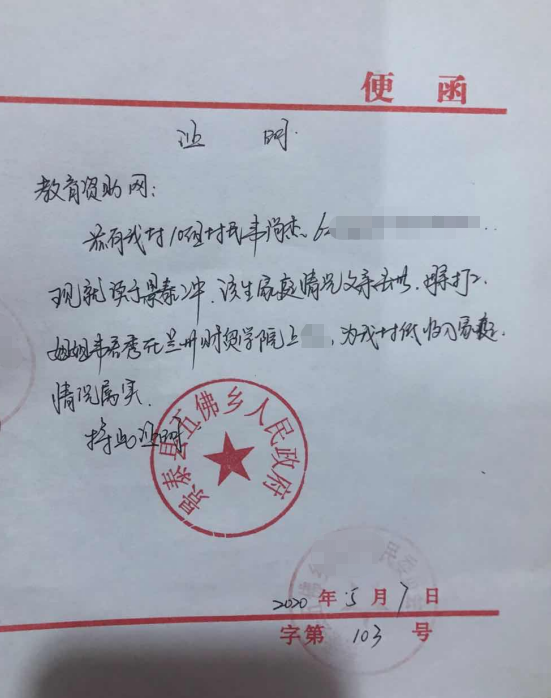 便 函
证 明
教育资助网:
兹有我村10组村民韦尚杰,6
现就读于景泰二中,该生家庭情况父亲去世,母亲打工
姐姐韦春秀在兰州财贸学院上,为我村低收入家庭
情况属实.
特此证明
景泰县五佛乡人民政府
2020 年 5 月 7 日
字第 103 号